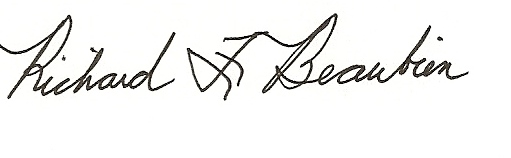 Richard F Beaubien